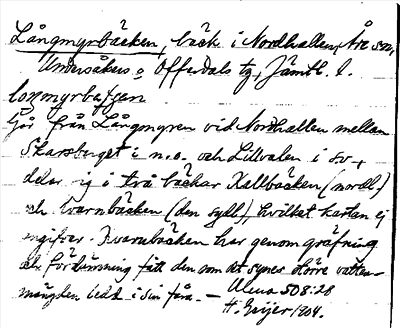 Långmyrbäcken, bäck i Nordhallen, Åre sn,
Undersåkers o Offerdals tg, Jämtl. l.
loŋmyrbɛʃʃen
Går från Långmyren vid Nordhallen mellan
Skarsberget i n.o. och Lillvalen i sv,
delar sig i två bäckar Kallbäcken (nordl.)
och Kvarnbäcken (den sydl.) hvilket kartan ej
angifver. Kvarnbäcken har genom gräfning
och fördämning fått den som det synes större vatten-
mängden ledd i sin fåra. —
Alma 508:28
H. Geijer 1904.